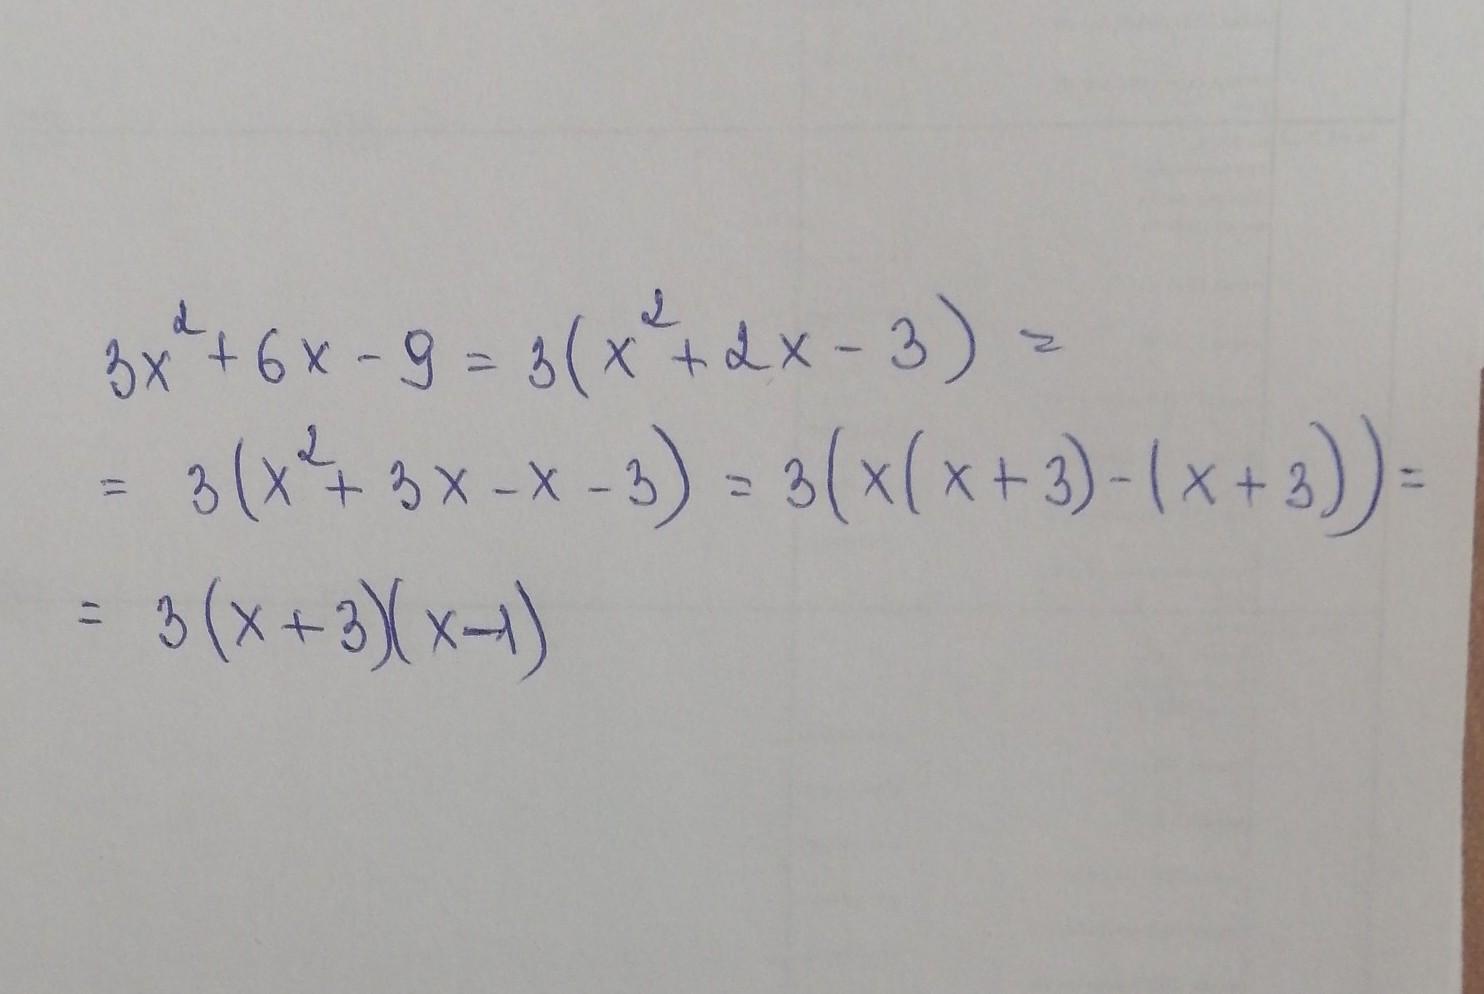 3x²+6x-9=3(x²+2x-3)=
= 3(x²+3x-x-3)=3(x(x+3)-(x+3))=
= 3(x+3)(x-1)